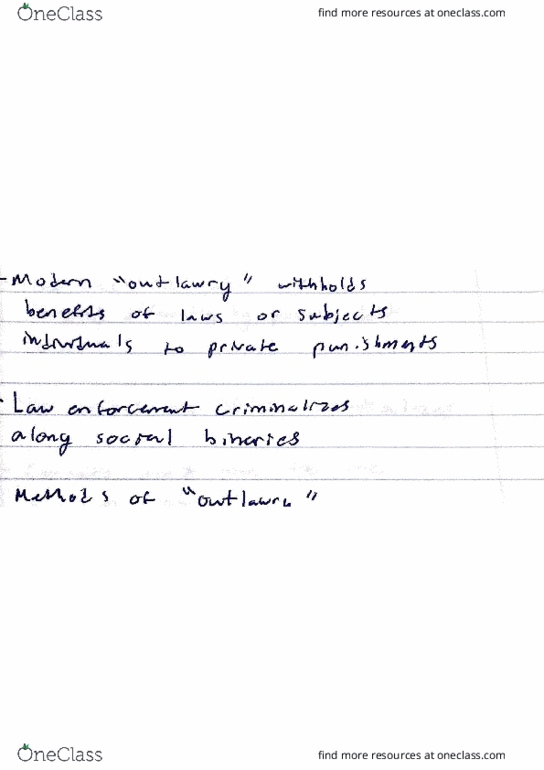 OneClass
find more resources at oneclass.com
- Modern "outlawry" withholds
benefits of laws or subjects
individuals to private punishments
· Law enforcement criminalizes
along social binaries
Methods of "outlawry"
OneClass
find more resources at oneclass.com